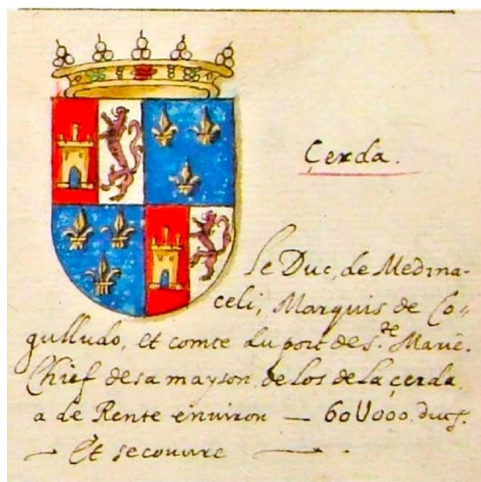 Çerda.
Le Duc, de Medina-
celi, Marquis de Co-
gulludo, et comte du port de S.te Marie.
Chief de sa mayson, de los de la çerda,
a de Rente environ — 60U000. ducs.
— Et se couvre —